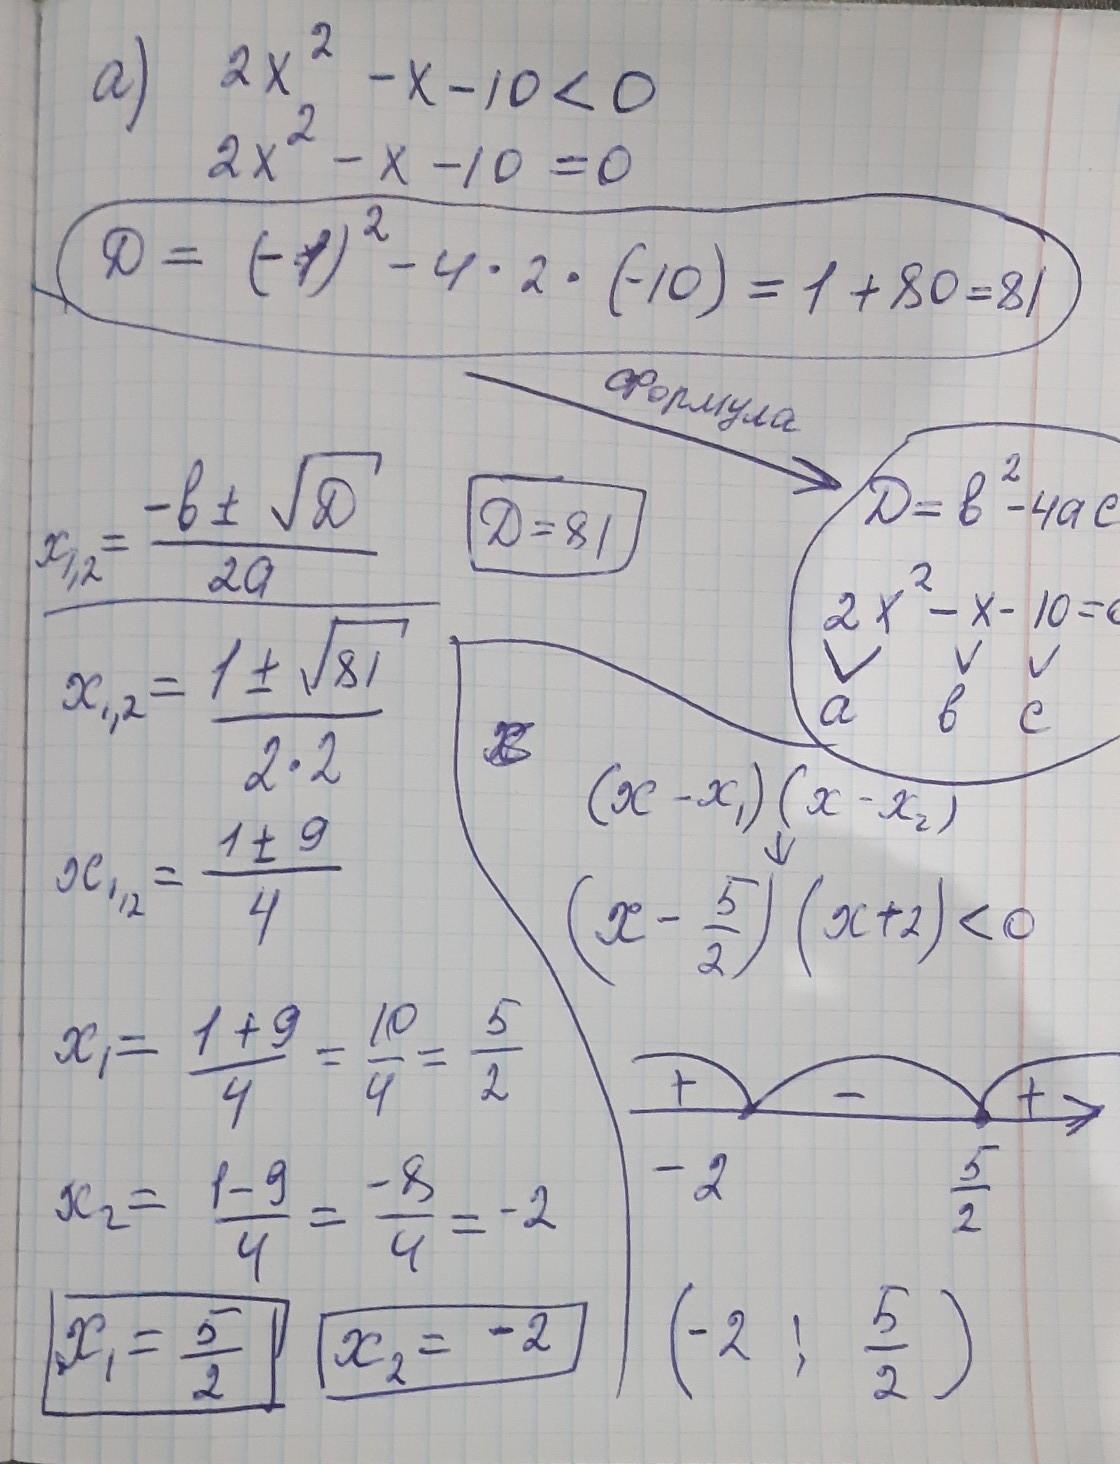 а) 2x² - x - 10 < 0
2x² - x - 10 = 0
D = (-1)² - 4 · 2 · (-10) = 1 + 80 = 81
формула
D = в² - 4ac
2x² - x - 10 =
a в c
x₁,₂ = (-в ± √D)/(2a)
D = 81
x₁,₂ = (1 ± √81)/(2·2)
x₁,₂ = (1 ± 9)/4
x₁ = (1 + 9)/4 = 10/4 = 5/2
x₂ = (1 - 9)/4 = -8/4 = -2
x₁ = 5/2
x₂ = -2
(x - x₁)(x - x₂)
(x - 5/2)(x + 2) < 0
+ - +
-2 5/2
(-2 ; 5/2)